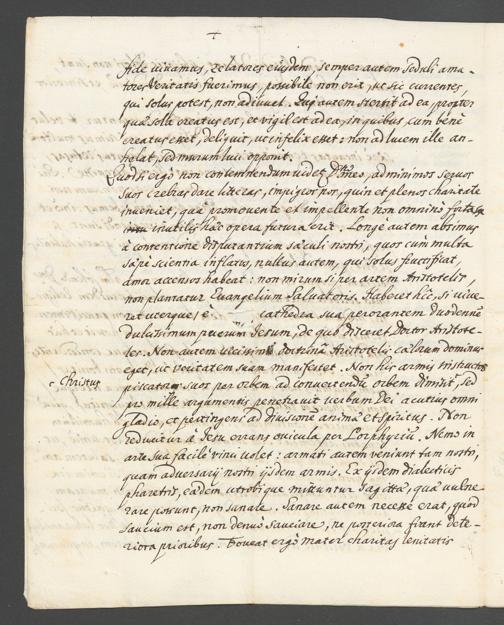 +
fide vivamus, zelatores eiusdem, semper autem seduli ama-
tores veritatis fuerimus, possibile non erit, ut sic currentes,
qui solus potest, non adiuvet. Qui autem stertit ad ea, propter
quæ sola creatus est, et vigil est ad ea, in quibus, cum bene
creatus esset, deliquit, ut infelix esset: non ad lucem ille an-
helat, sed murum luci opponit.
Quod si ergò non contemnendum videt ad minimos servos
suos crebras dare litteras, impigros nos, quin et plenos charitate
inveniet, qua promovente et impellente non omninò fortasse
inutilis hæc opera futura erit. Longè autem absimus
à contentione disputantium sæculi nostri, quos cum multa
sæpe scientia inflatos, nullus autem, qui solus fructificat,
amor accensos habeat: non mirum si per artem Aristotelis,
non plantatur Evangelium Salvatoris. Haberet hic, si vive-
ret uterque, è cathedra sua perorantem duodenne
dulcissimum puerum Iesum, de quo disceret Doctor Aristote-
les. Non autem vicissim doctrinâ Aristotelis cælorum dominus
eget, ut veritatem suam manifestet. Non his armis instructos
Christus
piscatores suos per orbem ad convertendum orbem dimisit, sed
pro mille argumentis penetravit verbum Dei acutius omni
gladio, et pertingens ad divisionem animæ et spiritus. Non
reducitur à Iesu errans ovicula per Porphyrium. Nemo in
arte sua facile vinci volet: armati autem veniunt tam nostri,
quam adversarij nostri ijsdem armis. Ex ijsdem dialecticis
pharetris, eædem utrobique mittuntur sagittæ, quæ vulne-
rare possunt, non sanare. Sanare autem necesse erat, quod
saucium est, non denuò sauciare, ne posteriora fiant dete-
riora prioribus. Foveat ergò mater charitas lenitatis